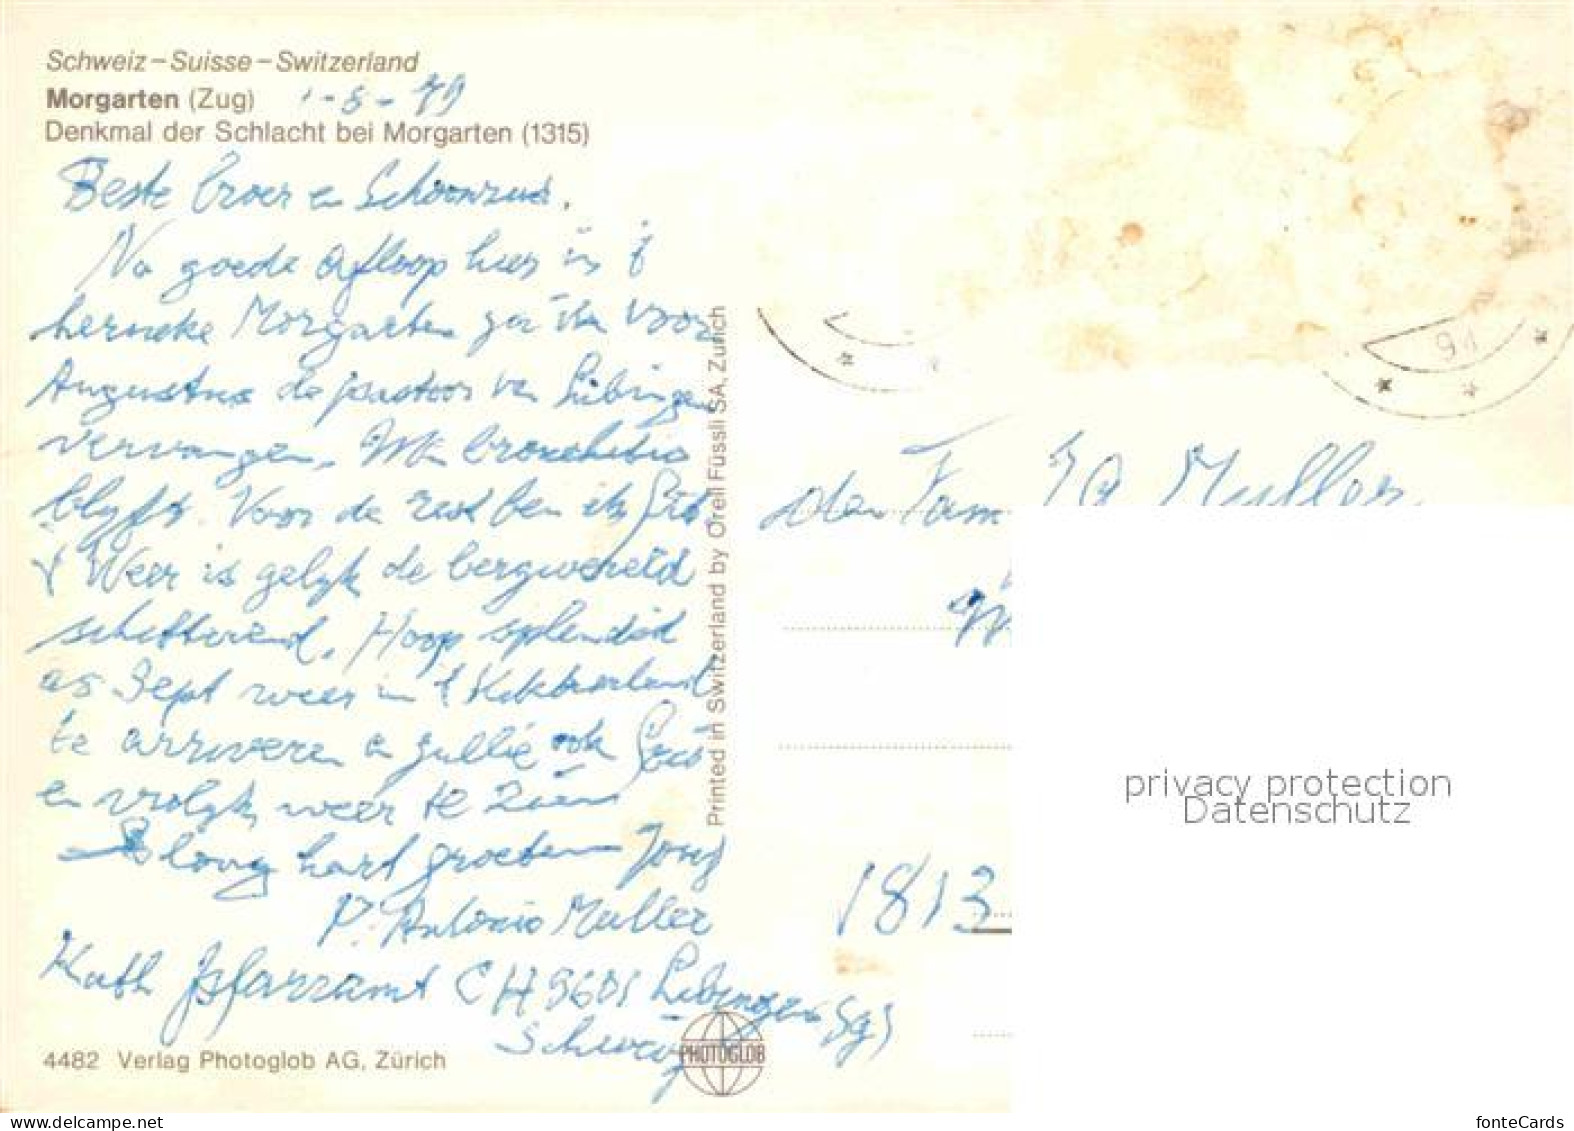 Schweiz – Suisse – Switzerland
Morgarten (Zug) 1-8-79
Denkmal der Schlacht bei Morgarten (1315)
Beste broer en Schoonzus.
Na goede afloop hier in 't
Morgarten ga ik voor
Augustus de pastoor van Libingen
vervangen. Mn bronchitis
blyft. Voor de rest ben ik
't Weer is gelyk de bergwereld
schitterend. Hoop splendid
as Sept weer in 't
te arriveren en jullie ook
en vrolyk weer te zien
hart groeten Josef
P. Antonio Muller
Kath Pfarramt CH 9601 Libingen Sg
Schweiz
4482 Verlag Photoglob AG, Zürich
PHOTOGLOB
Printed in Switzerland by Orell Füssli SA, Zürich
91
den Fam Muller
1813
privacy protection
Datenschutz
www.delcampe.net
fonteCards